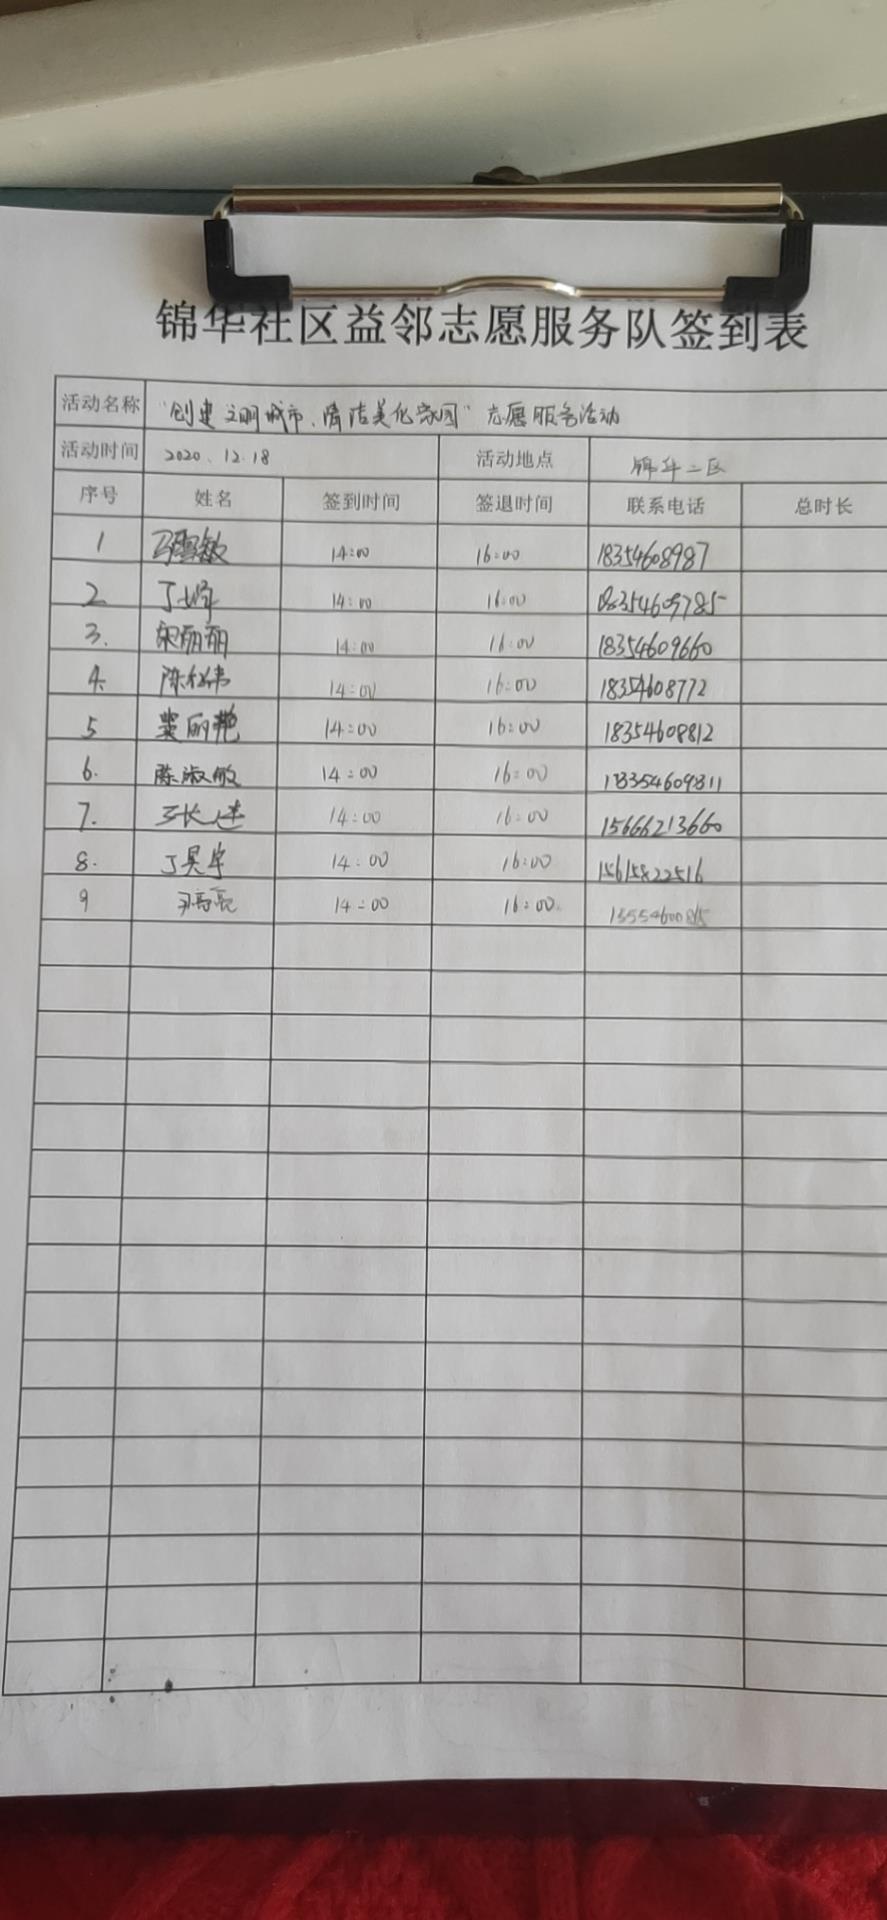 锦华社区益邻志愿服务队签到表
活动名称 "创建文明城市、清洁美化家园"志愿服务活动
活动时间 2020.12.18 活动地点 锦华二区
序号 姓名 签到时间 签退时间 联系电话 总时长
1 14:00 16:00 18354608987
2 丁峰 14:00 16:00 18354609785
3. 宋丽丽 14:00 16:00 18354609660
4. 14:00 16:00 18354608772
5 裴丽艳 14:00 16:00 18354608812
6. 陈淑敏 14:00 16:00 18354609311
7. 王长连 14:00 16:00 15666213660
8. 丁昊宇 14:00 16:00 15615822516
9 14:00 16:00.